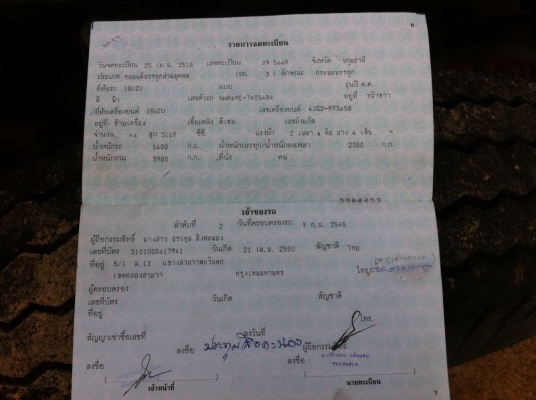 รายการจดทะเบียน
วันจดทะเบียน 25 เม.ย. 2516 เลขทะเบียน 5668 จังหวัด ปทุมธานี
ประเภท รถยนต์บรรทุกส่วนบุคคล (รย. 3) ลักษณะ กระบะบรรทุก
ยี่ห้อรถ ISUZU แบบ รุ่นปี ค.ศ.
สี ฟ้า เลขตัวรถ อยู่ที่ หน้าขวา
ยี่ห้อเครื่องยนต์ ISUZU เลขเครื่องยนต์ 4JG2-973658
อยู่ที่ ข้างเครื่อง เชื้อเพลิง ดีเซล เลขถังแก๊ส
จำนวน 4 สูบ 3059 ซีซี แรงม้า 2 เพลา 4 ล้อ ยาง 4 เส้น
น้ำหนักรถ 1600 ก.ก. น้ำหนักบรรทุก/น้ำหนักลงเพลา 2300 ก.ก.
น้ำหนักรวม 3900 ก.ก. ที่นั่ง คน
เจ้าของรถ
ลำดับที่ 2 วันที่ครอบครองรถ 9 ก.ย. 2545
ผู้ถือกรรมสิทธิ์ นางสาว ประทุม
เลขที่บัตร 3101000617941 วันเกิด 21 เม.ย. 2500 สัญชาติ ไทย
ที่อยู่ 5/1 ม.13 แขวงสามวาตะวันตก โทร.
เขตคลองสามวา กรุงเทพมหานคร
ผู้ครอบครอง
เลขที่บัตร วันเกิด สัญชาติ
ที่อยู่ โทร.
สัญญาเช่าซื้อเลขที่ ลงวันที่
ลงชื่อ ประทุม ผู้ถือกรรมสิทธิ์
ลงชื่อ ลงชื่อ
เจ้าหน้าที่ นายทะเบียน